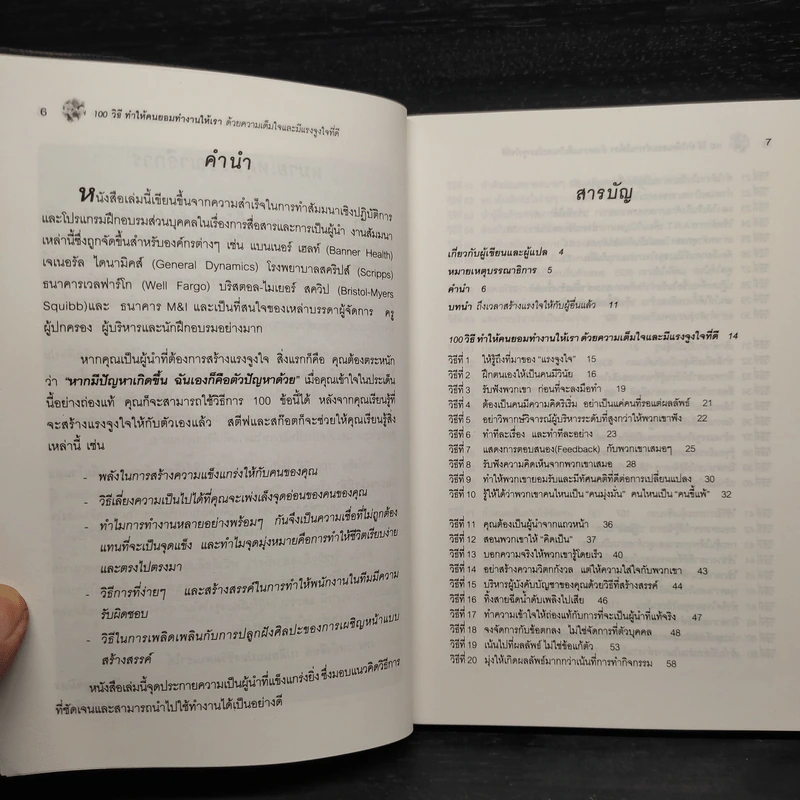 6
100 วิธี ทำให้คนยอมทำงานให้เรา ด้วยความเต็มใจและมีแรงจูงใจที่ดี
คำนำ
หนังสือเล่มนี้เขียนขึ้นจากความสำเร็จในการทำสัมมนาเชิงปฏิบัติการ
และโปรแกรมฝึกอบรมส่วนบุคคลในเรื่องการสื่อสารและการเป็นผู้นำ งานสัมมนา
เหล่านี้ซึ่งถูกจัดขึ้นสำหรับองค์กรต่างๆ เช่น แบนเนอร์ เฮลท์ (Banner Health)
เจเนอรัล ไดนามิคส์ (General Dynamics) โรงพยาบาลสคริปส์ (Scripps)
ธนาคารเวลฟาร์โก (Well Fargo) บริสตอล-ไมเยอร์ สควิป (Bristol-Myers
Squibb)และ ธนาคาร M&I และเป็นที่สนใจของเหล่าบรรดาผู้จัดการ ครู
ผู้ปกครอง ผู้บริหารและนักฝึกอบรมอย่างมาก
หากคุณเป็นผู้นำที่ต้องการสร้างแรงจูงใจ สิ่งแรกก็คือ คุณต้องตระหนัก
ว่า "หากมีปัญหาเกิดขึ้น ฉันเองก็คือตัวปัญหาด้วย" เมื่อคุณเข้าใจในประเด็น
นี้อย่างถ่องแท้ คุณก็จะสามารถใช้วิธีการ 100 ข้อนี้ได้ หลังจากคุณเรียนรู้ที่
จะสร้างแรงจูงใจให้กับตัวเองแล้ว สตีฟและสก๊อตก็จะช่วยให้คุณเรียนรู้สิ่ง
เหล่านี้ เช่น
- พลังในการสร้างความแข็งแกร่งให้กับคนของคุณ
- วิธีเลี่ยงความเป็นไปได้ที่คุณจะเพ่งเล็งจุดอ่อนของคนของคุณ
- ทำไมการทำงานหลายอย่างพร้อมๆ กันจึงเป็นความเชื่อที่ไม่ถูกต้อง
แทนที่จะเป็นจุดแข็ง และทำไมจุดมุ่งหมายคือการทำให้ชีวิตเรียบง่าย
และตรงไปตรงมา
- วิธีการที่ง่ายๆ และสร้างสรรค์ในการทำให้พนักงานในทีมมีความ
รับผิดชอบ
- วิธีในการเพลิดเพลินกับการปลูกฝังศิลปะของการเผชิญหน้าแบบ
สร้างสรรค์
หนังสือเล่มนี้จุดประกายความเป็นผู้นำที่แข็งแกร่งยิ่ง ซึ่งมอบแนวคิดวิธีการ
ที่ชัดเจนและสามารถนำไปใช้ทำงานได้เป็นอย่างดี
7
สารบัญ
เกี่ยวกับผู้เขียนและผู้แปล 4
หมายเหตุบรรณาธิการ 5
คำนำ 6
บทนำ ถึงเวลาสร้างแรงใจให้กับผู้อื่นแล้ว 11
100 วิธี ทำให้คนยอมทำงานให้เรา ด้วยความเต็มใจและมีแรงจูงใจที่ดี 14
วิธีที่ 1 ให้รู้ถึงที่มาของ "แรงจูงใจ" 15
วิธีที่ 2 ฝึกตนเองให้เป็นคนมีวินัย 16
วิธีที่ 3 รับฟังพวกเขา ก่อนที่จะลงมือทำ 19
วิธีที่ 4 ต้องเป็นคนมีความคิดริเริ่ม อย่าเป็นแค่คนที่รอแต่ผลลัพธ์ 21
วิธีที่ 5 อย่าวิพากษ์วิจารณ์ผู้บริหารระดับที่สูงกว่าให้พวกเขาฟัง 22
วิธีที่ 6 ทำทีละเรื่อง และทำทีละอย่าง 23
วิธีที่ 7 แสดงการตอบสนอง(Feedback) กับพวกเขาเสมอๆ 25
วิธีที่ 8 รับฟังความคิดเห็นจากพวกเขาเสมอ 28
วิธีที่ 9 ทำให้พวกเขายอมรับและมีทัศนคติที่ดีต่อการเปลี่ยนแปลง 30
วิธีที่ 10 รู้ให้ได้ว่าพวกเขาคนไหนเป็น "คนมุ่งมั่น" คนไหนเป็น "คนขี้แพ้" 32
วิธีที่ 11 คุณต้องเป็นผู้นำจากแถวหน้า 36
วิธีที่ 12 สอนพวกเขาให้ "คิดเป็น" 37
วิธีที่ 13 บอกความจริงให้พวกเขารู้โดยเร็ว 40
วิธีที่ 14 อย่าสร้างความวิตกกังวล แต่ให้ความใส่ใจกับพวกเขา 43
วิธีที่ 15 บริหารผู้บังคับบัญชาของคุณด้วยวิธีที่สร้างสรรค์ 44
วิธีที่ 16 ทิ้งสายฉีดน้ำดับเพลิงไปเสีย 46
วิธีที่ 17 ทำความเข้าใจให้ถ่องแท้กับการที่จะเป็นผู้นำที่แท้จริง 47
วิธีที่ 18 จงจัดการกับข้อตกลง ไม่ใช่จัดการที่ตัวบุคคล 48
วิธีที่ 19 เน้นไปที่ผลลัพธ์ ไม่ใช่ข้อแก้ตัว 53
วิธีที่ 20 มุ่งให้เกิดผลลัพธ์มากกว่าเน้นที่การทำกิจกรรม 58